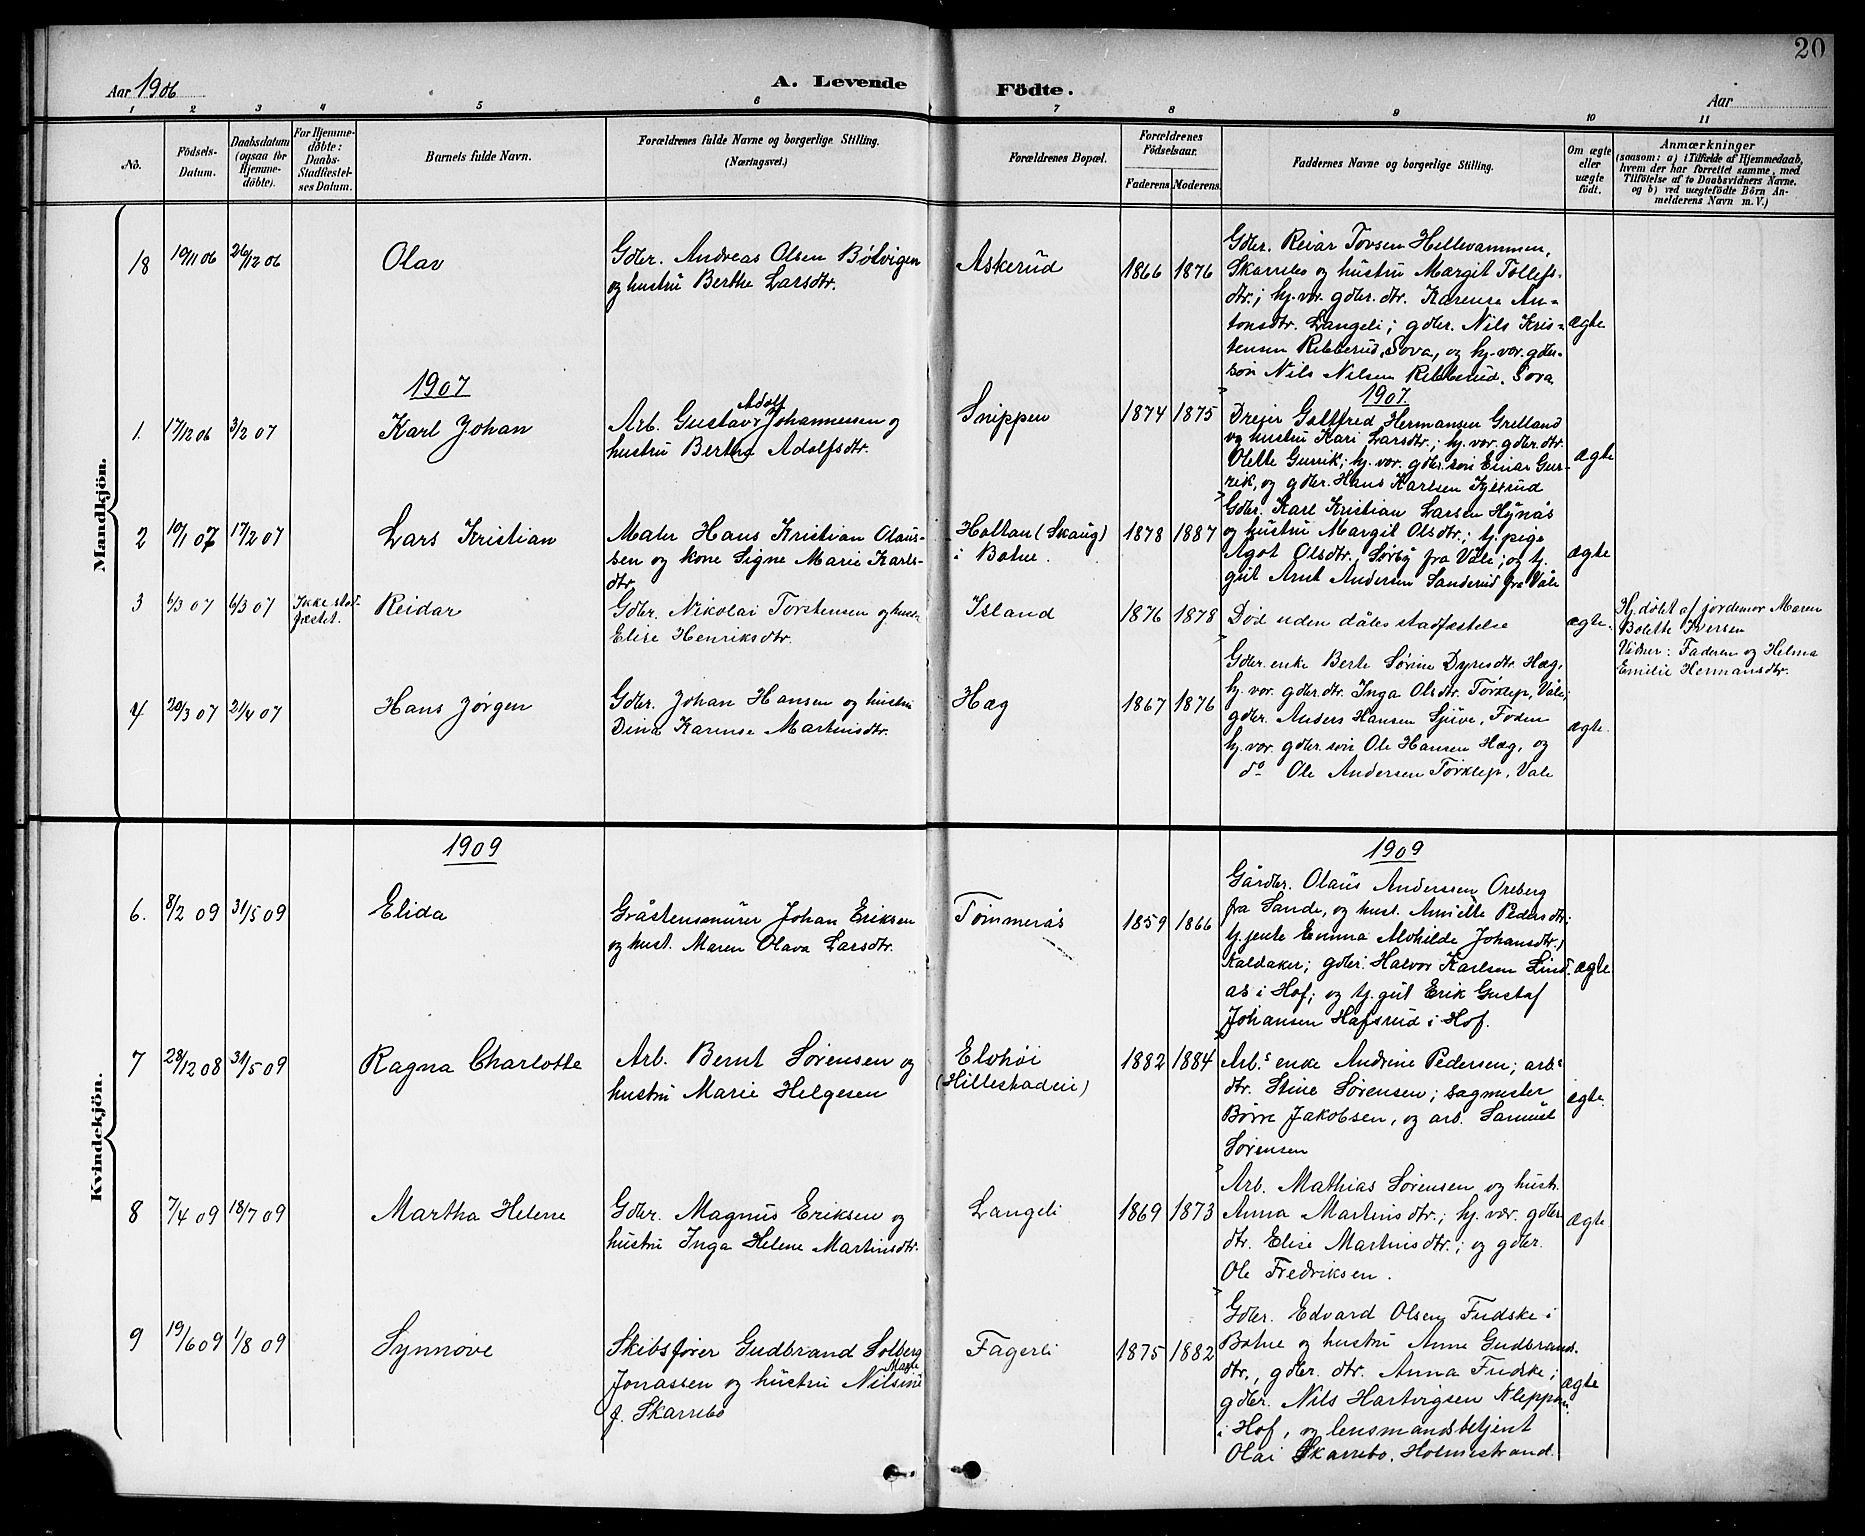 20
Aar 1906
A. Levende Födte.
Aar
1 2 3 4 5 6 7 8 9 10 11
No.
Födsels-
Datum.
Daabsdatum
(ogsaa for
Hjemme-
döbte).
For Hjemme-
döbte:
Daabs-
Stadfæstel-
ses Datum.
Barnets fulde Navn.
Forældrenes fulde Navne og borgerlige Stilling.
(Næringsvei.)
Forældrenes Bopæl.
Forældrenes
Födselsaar.
Faderens. Moderens.
Faddernes Navne og borgerlige Stilling.
Om ægte
eller
uægte
födt.
Anmærkninger
(saasom: a) i Tilfælde af Hjemmedaab,
hvem der har forrettet samme, med
Tilföielse af to Daabsvidners Navne.
og b) ved uægtefödte Börn An-
melderens Navn m. V.)
Mandkjön.
18
19/11 06
26/12 06
Olav
Gdbr. Andreas Olsen Bölvigen
og hustru Berthe Larsdtr.
Askerud
1866
1876
Gdbr. Reiar Tovsen Hellevammen,
Skarrebo og hustru Margit Tollefs-
dtr.; hj. vær. gdbr. dtr. Karense An-
tonsdtr. Langeli; gdbr. Nils Kris-
tensen Ribberud, Sova, og hj. vær. gdbr.
søn Nils Nilsen Ribberud, Sova
ægte
1907
1907
1.
17/12 06
3/2 07
Karl Johan
Adolf
Arb. Gustav Johannessen og
hustru Berthe Adolfsdtr.
Snippen
1874
1875
Dreier Gottfred Hermansen Grelland
og hustru Kari Larsdtr.; hj. vær. gdbr. dtr.
Olette Gurrik; hj. vær. gdbr. søn Einar Gur-
rik, og gdbr. Hans Karlsen Kjelsrud
ægte
2
19/1 07
17/2 07
Lars Kristian
Maler Hans Kristian Olaus-
sen og kone Signe Marie Karls-
dtr.
Holtan (Skaug)
i Botne.
1878
1887
Gdbr. Karl Kristian Larsen Hynås
og hustru Margit Olsdtr.; tj. pige
Agot Olsdtr. Sørby fra Våle; og tj.
gut Arnt Andersen Sanderud fra Våle
ægte
3
6/3 07
6/3 07
Ikke stad-
fæstet.
Reidar
Gdbr. Nikolai Torstensen og hus-
Elise Henriksdtr.
Island
1876
1878
Død uden dåbs stadfæstelse
ægte.
Hj. døbt af jordemor Maren
Bolette Iversen
Vidner: Faderen og Helma
Emilie Hermansdtr.
4
20/3 07
21/4 07
Hans Jørgen
Gdbr. Johan Hansen og hustru
Dina Karense Martinsdtr.
Hæg
1867
1876
Gdbr. enke Berte Sørine Dyresdtr. Hæg,
hj. vær. gdbr. dtr. Inga Olsdtr. Torklep, Våle;
gdbr. Anders Hansen Sjue, Foden
hj. vær. gdbr. søn Ole Hansen Hæg, og
do Ole Andersen Torklep, Vale
ægte.
Kvindekjön.
1909
1909
6.
8/2 09
31/5 09
Elida
Gråstensmurer Johan Eriksen
og hust. Maren Olava Larsdtr.
Tømmerås
1859
1866
Gårdbr. Olaus Anderssen Oreberg
fra Sande, og hust. Annette Pedersdtr;
tj. jente Emma Alvhilde Johansdtr.,
Kaldaker; gdbr. Halvor Karlsen Lind-
ås i Hof; og tj. gut Erik Gustaf
Johansen Hafsrud i Hof.
ægte
7
28/12 08
31/5 09
Ragna Charlotte
Arb. Bernt Sørensen og
hustru Marie Helgesen
Elvhøi
(Hillestadeie)
1882
1884
Arb.s enke Andrine Pedersen; arb.s
dtr. Stine Sørensen; sagmester
Børre Jakobsen, og arb. Samuel
Sørensen
ægte.
8
7/4 09
18/7 09
Martha Helene
Gdbr. Magnus Eriksen og
hustru Inga Helene Martinsdtr.
Langeli
1869
1873
Arb. Mathias Sørensen og hust.
Anna Martinsdtr.; hj. vær. gdbr.
dtr. Elise Martinsdtr.; og gdbr.
Ole Fredriksen.
ægte.
9
19/6 09
1/8 09
Synnøve
Skibsfører Gudbrand Solberg
Marie
Jonassen og hustru Nilsine
f. Skarrebo
Fagerli
1875
1882
Gdbr. Edvard Olsen Fudske i
Botne og hustru Anne Gudbrands-
dtr., gdbr. dtr. Anna Fudske;
gdbr. Nils Hartvigsen Kleppan
i Hof, og lensmandsbetjent
Olai Skarrebo, Holmestrand.
ægte